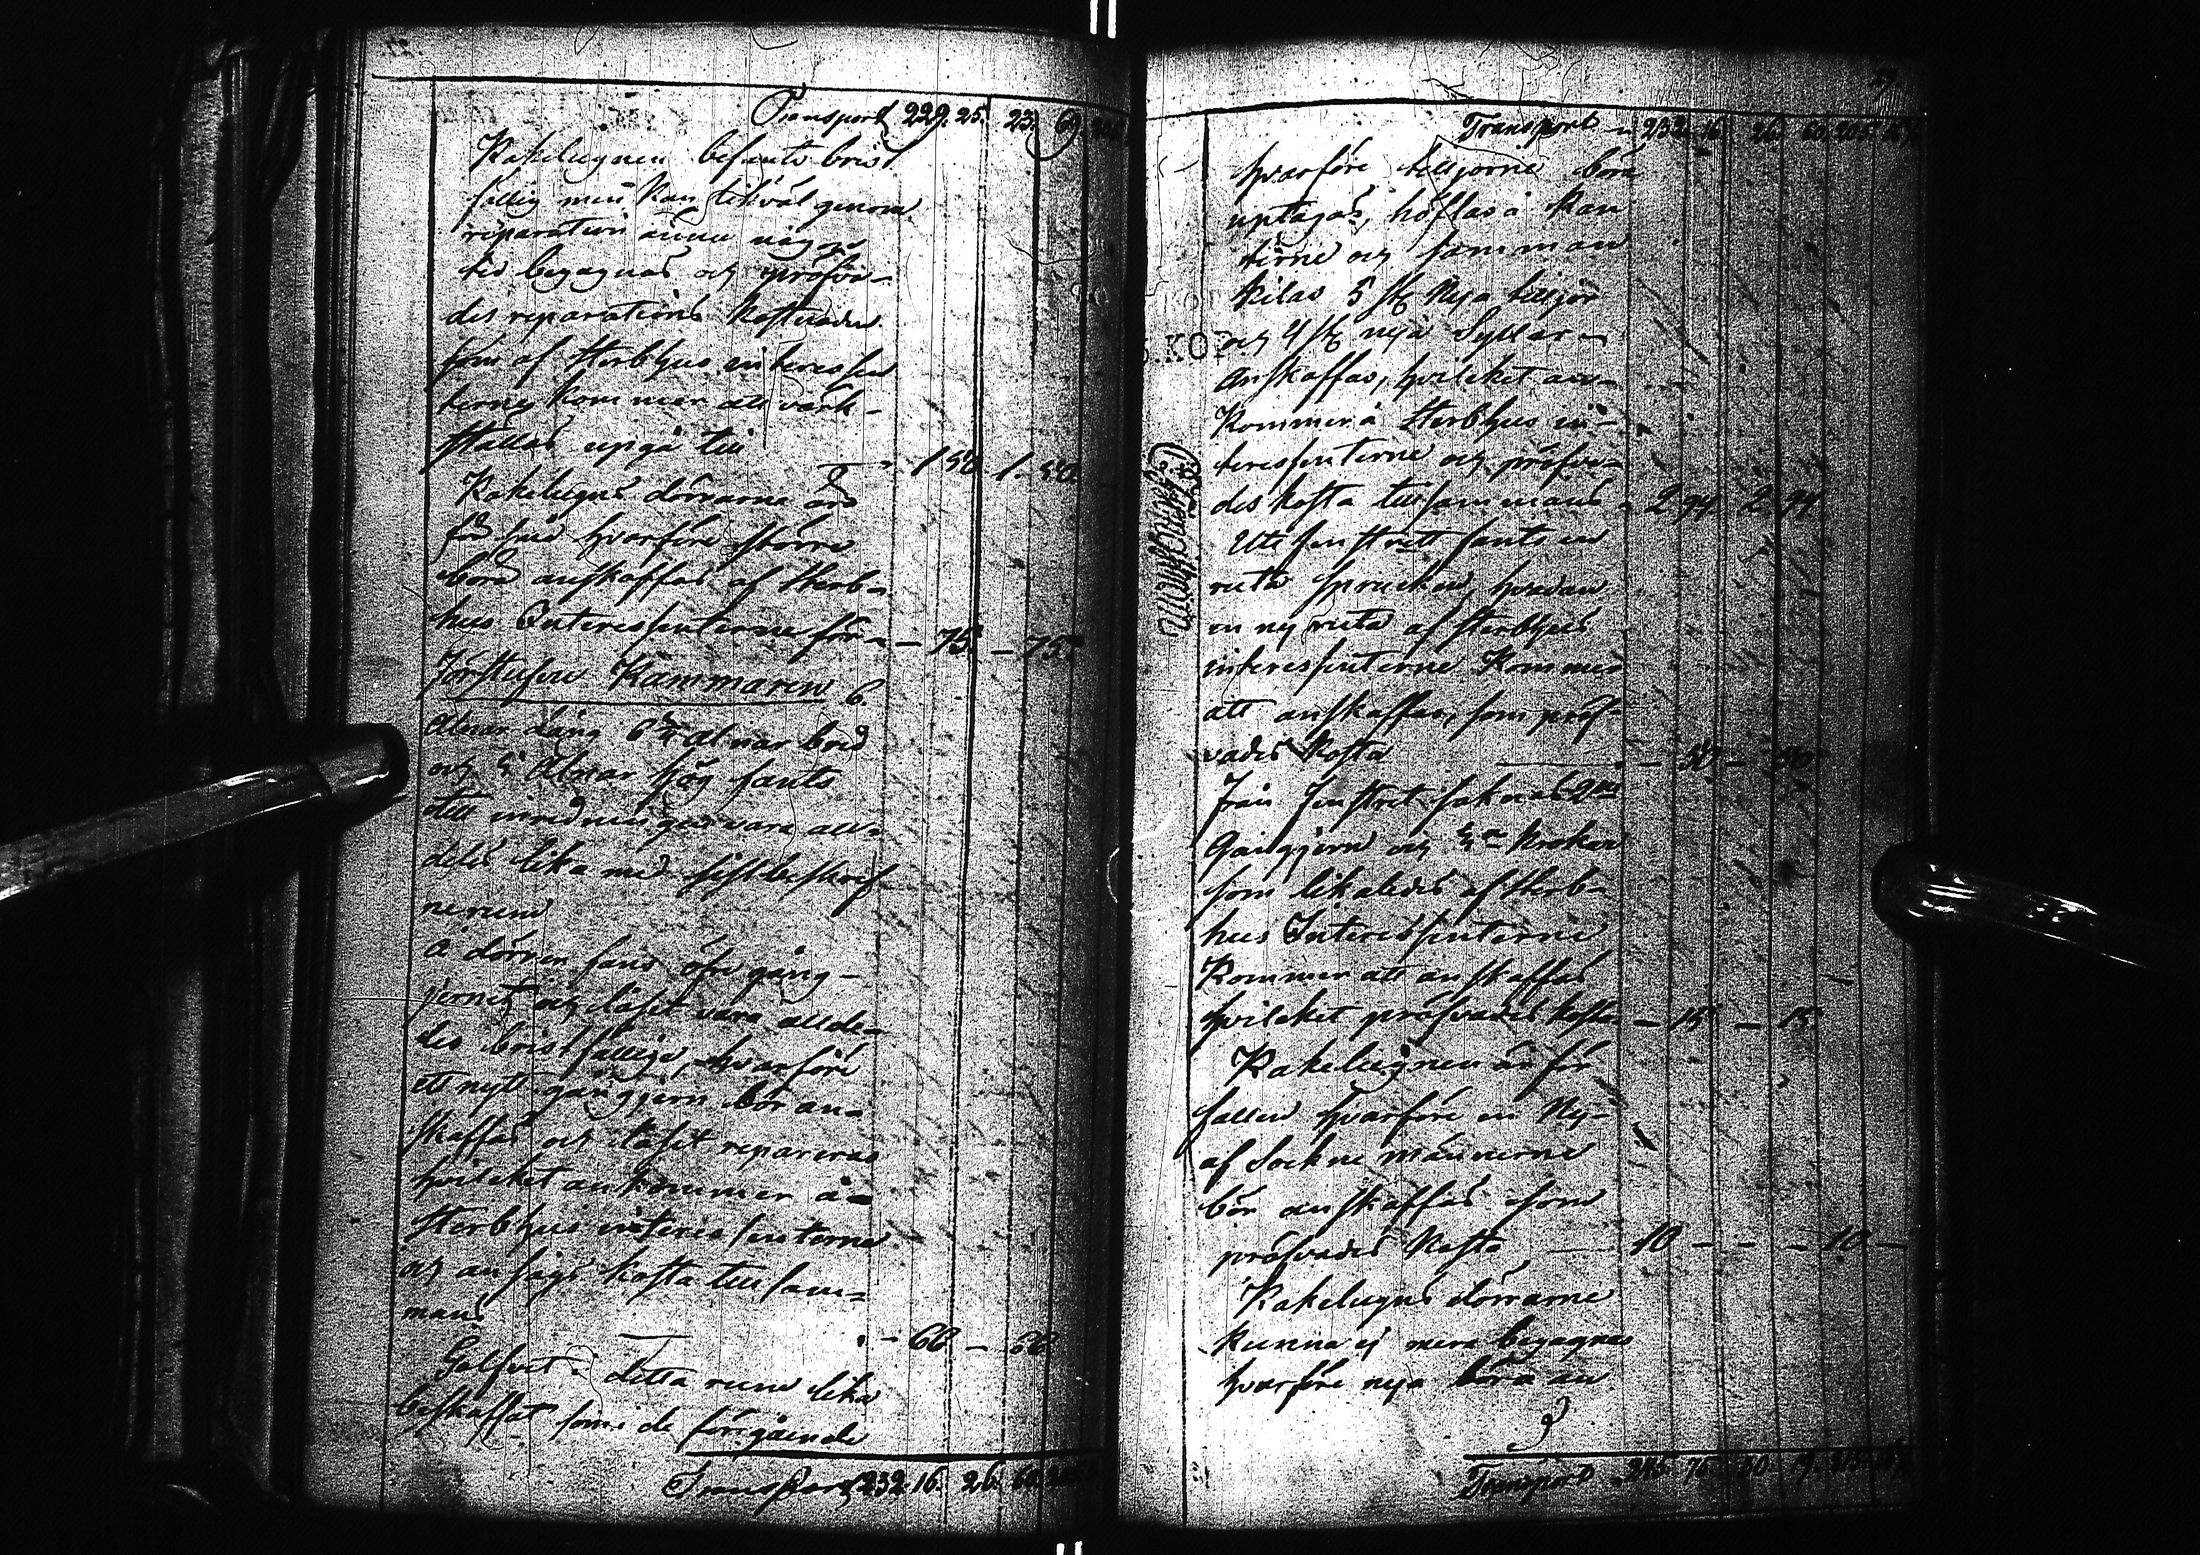 Transport 229. 25. 23. 69.
Kakelugnen befants brist
fällig men kan likväl genom
reparation ännu någon
tid begagnas och pröfva-
des reparations kostnaden
som af Sterbhus interessen
terne kommer att värk-
ställas upgå till
1 50 1. 50.
Kakelugns dörrarne äro
för små hvarföre större
böra anskaffas af Sterb-
hus Interessenterne för - 75 - 75.
Förstufvu Kammaren 6.
Alnar Lång 6 1/4 alnar bred
och 4 Alnar hög fants
till inredningen vara all-
deles lika med sist beskref
ne rum
Å dörren fans öfre gång-
jernet och låset vara allde-
les bristfällige, hvarföre
ett nytt gångjern bör an-
skaffas och låset repareras
hvilcket ankommer å
Sterbhus interessenterne
och ansågs kosta tillsam-
mans
- 66 - 66
Golfvet i detta rum lika
beskaffat som i de föregående
Transport 232. 16. 26. 60.
Transport 232. 16. 26. 60. 205.
hvarföre tilljorne böra
uptagas, höflas i kan
terne och samman
kilas 5 st nya tilljor
och 4 st nya Syllar
anskaffas, hvilcket an-
kommer å Sterbhus in-
teressenterne och pröfva-
des kosta tillsammans 2 94 2 94
Ute fenstret fants en
ruta sprucken, hvadan
en ny ruta af Sterbhus
interessenterne kommer
att anskaffas, som pröf-
vades kosta - 50 - 50
Från fenstret saknas 2ne
Gångjern och 4ra krokar
som likaledes af Sterb-
hus Interessenterne
kommer att anskaffas
hvilcket pröfvades kosta - 15 - 15.
Kakelugnen är för
fallen hvarföre en Ny
af Sockne männerne
bör anskaffas som
pröfvades kosta 10 - - - 10 -
Kakelugns dörrarne
kunna ej mera begagnas
hvarföre nya böra an
Transport 245. 75. 30. 19. 215.